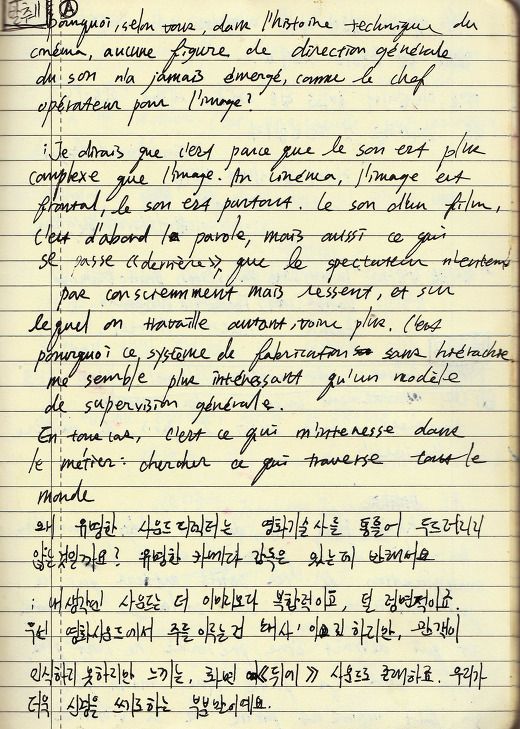 Ⓐ
pourquoi, selon vous, dans l'histoire technique du
cinéma, aucune figure de direction générale
du son n'a jamais émergé, comme le chef
opérateur pour l'image?
: Je dirais que c'est parce que le son est plus
complexe que l'image. Au cinéma, l'image est
frontal, le son est partout. Le son d'un film,
c'est d'abord la parole, mais aussi ce qui
se passe «derrière», que le spectateur n'entend
pas consciemment mais ressent, et sur
lequel on travaille autant, voire plus. C'est
pourquoi ce système de fabrication sans hiérarchie
me semble plus intéressant qu'un modèle
de supervision générale.
En tous cas, c'est ce qui m'intéresse dans
le métier: chercher ce qui traverse tout le
monde
왜 유명한 사운드디렉터는 영화기술사를 통틀어 두드러지지
않는것일까요? 유명한 카메라 감독은 있는데 반해서요
: 내생각엔 사운드는 더 이미지보다 복합적이고, 덜 정면적이죠.
우선 영화사운드에서 주를 이루는건 '대사' 이기도 하지만, 관객이
인식하지 못하지만 느끼는, 화면 《뒤에》 사운드로 존재하죠. 우리가
더욱 신경을 쓰기도하는 부분말이에요.